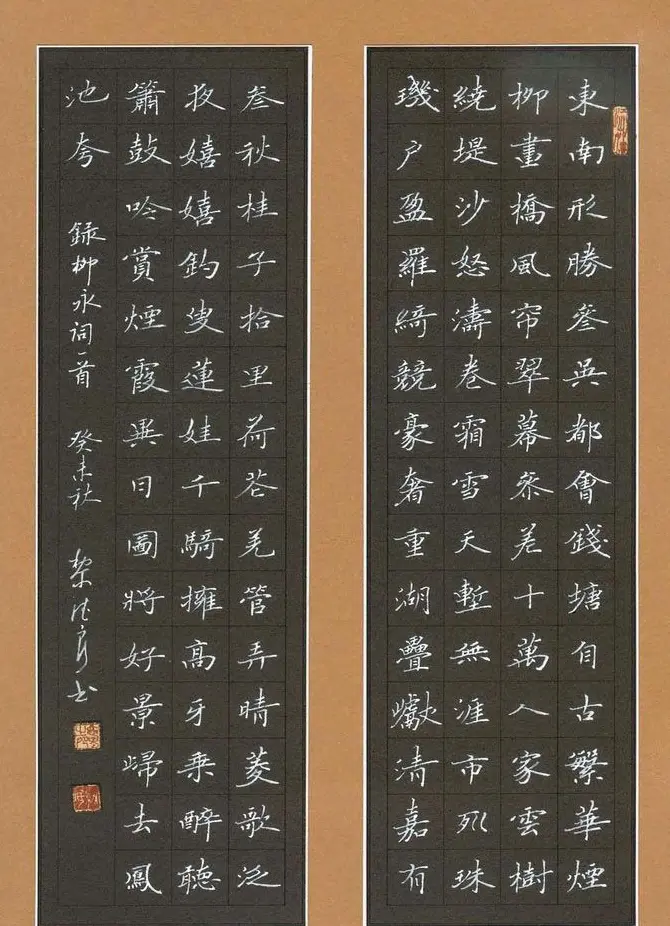 東南形勝叄吳都會錢塘自古繁華煙
柳畫橋風帘翠幕叅差十萬人家雲樹
繞堤沙怒濤卷霜雪天塹無涯市列珠
璣户盈羅綺競豪奢重湖疊巘清嘉有
叁秋桂子拾里荷花羌管弄晴菱歌泛
夜嬉嬉釣叟蓮娃千騎擁高牙乘醉聽
簫鼓吟賞煙霞異日圖將好景歸去鳳
池夸 録柳永词一首 癸未秋 书